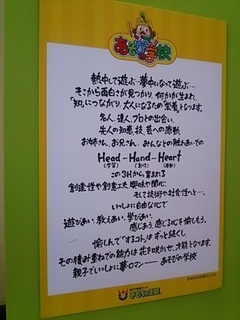 あそびの学校
熱中して遊ぶ…夢中になって遊ぶ…
そこから面白さが見つかり、何かが生まれ、
「知」につながり、大人になるための栄養となります。
名人、達人、プロとの出会い。
先人の知恵、技、芸への感動。
お姉さん、お兄さん、みんなとの触れあいでの
Head-Hand-Heart
この3Hから育まれる
創造性や創意工夫、興味や関心
そして技術や社会性へと…。
いっしょに自由な心で
遊びあい、教えあい、学びあい
感じあう、感じる心を愉しもう。
愉しんで「するコト」はずっと続くし
その積み重ねでの能力は花を咲かせ、才能となります。
親子でいっしょに夢・ロマン――あそびの学校